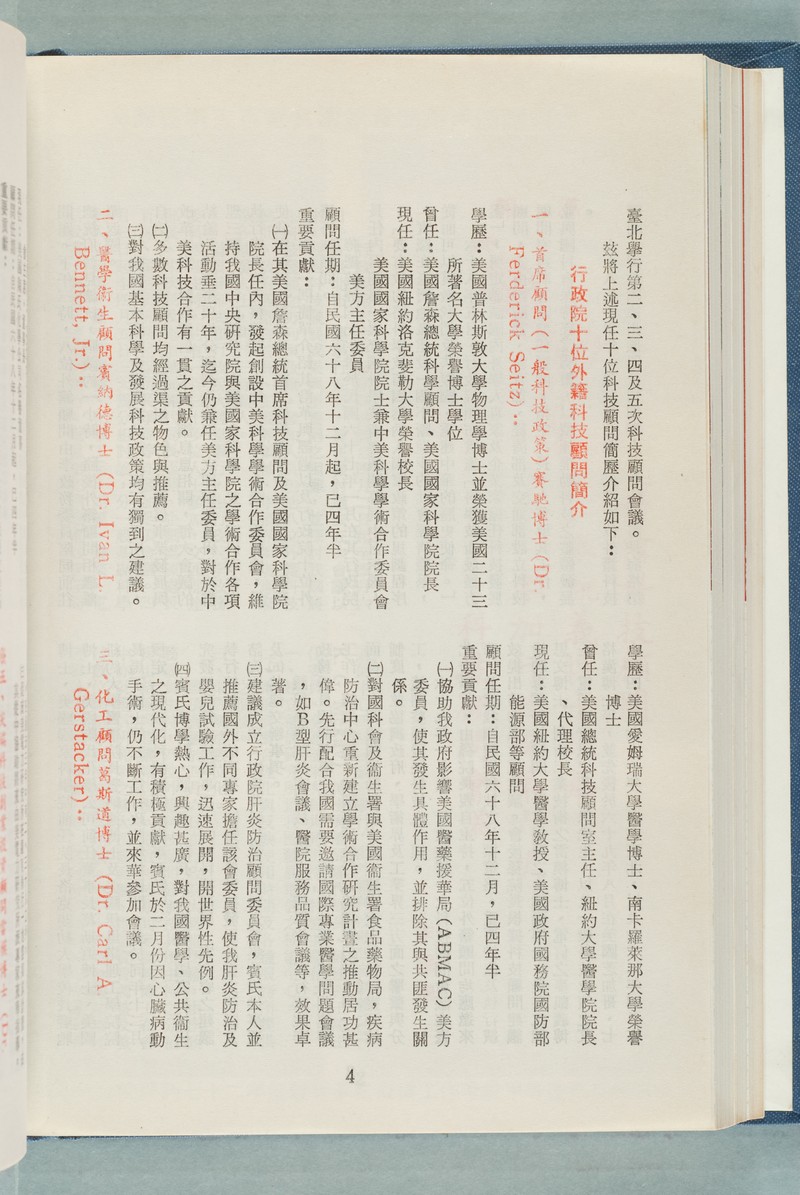 臺北舉行第二、三、四及五次科技顧問會議。
玆將上述現任十位科技顧問簡歷介紹如下：
行政院十位外籍科技顧問簡介
一、首席顧問（一般科技政策）賽馳博士（Dr.
Ferderick Seitz）：
學歷：美國普林斯敦大學物理學博士並榮獲美國二十三
所著名大學榮譽博士學位
曾任：美國詹森總統科學顧問、美國國家科學院院長
現任：美國紐約洛克斐勒大學榮譽校長
美國國家科學院院士兼中美科學學術合作委員會
美方主任委員
顧問任期：自民國六十八年十二月起，已四年半
重要貢獻：
㈠在其美國詹森總統首席科技顧問及美國國家科學院
院長任內，發起創設中美科學學術合作委員會，維
持我國中央研究院與美國家科學院之學術合作各項
活動垂二十年，迄今仍兼任美方主任委員，對於中
美科技合作有一貫之貢獻。
㈡多數科技顧問均經過渠之物色與推薦。
㈢對我國基本科學及發展科技政策均有獨到之建議。
二、醫學衛生顧問賓納德博士（Dr. Ivan L.
Bennett, Jr.）：
學歷：美國愛姆瑞大學醫學博士、南卡羅萊那大學榮譽
博士
曾任：美國總統科技顧問室主任、紐約大學醫學院院長
、代理校長
現任：美國紐約大學醫學教授、美國政府國務院國防部
能源部等顧問
顧問任期：自民國六十八年十二月，已四年半
重要貢獻：
㈠協助我政府影響美國醫藥援華局（ABMAC）美方
委員，使其發生具體作用，並排除其與共匪發生關
係。
㈡對國科會及衞生署與美國衞生署食品藥物局，疾病
防治中心重新建立學術合作研究計畫之推動居功甚
偉。先行配合我國需要邀請國際專業醫學問題會議
，如B型肝炎會議、醫院服務品質會議等，效果卓
著。
㈢建議成立行政院肝炎防治顧問委員會，賓氏本人並
推薦國外不同專家擔任該會委員，使我肝炎防治及
嬰兒試驗工作，迅速展開，開世界性先例。
㈣賓氏博學熱心，興趣甚廣，對我國醫學、公共衞生
之現代化，有積極貢獻，賓氏於二月份因心臟病動
手術，仍不斷工作，並來華參加會議。
三、化工顧問葛斯道博士（Dr. Carl A
Gerstacker）：
4